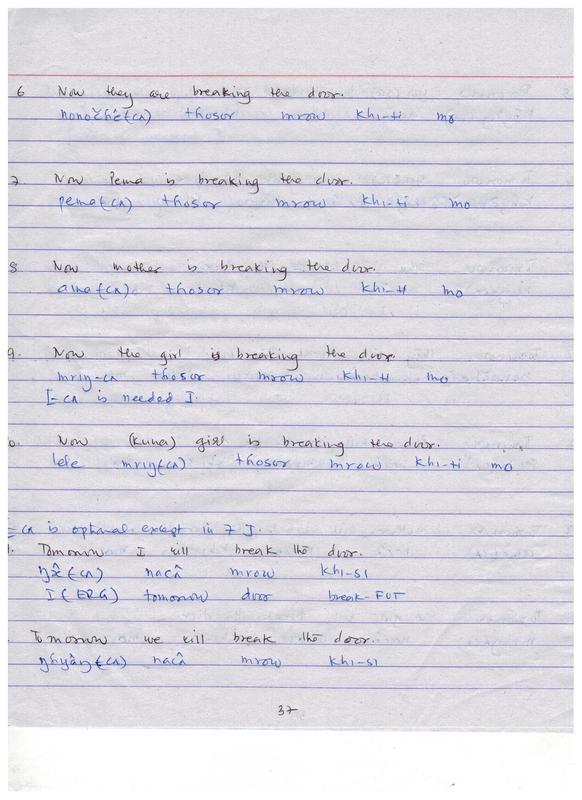 6 Now they are breaking the door.
nonočhẽ(cʌ) thosor mrow khɪ-ti mo
7 Now Pema is breaking the door.
pema(cʌ) thosor mrow khɪ-ti mo
8 Now mother is breaking the door.
ama(cʌ) thosor mrow khɪ-ti mo
9. Now the girl is breaking the door.
mriŋ-cʌ thosor mrow khɪ-ti mo
[-cʌ is needed].
Now (kuna) girl is breaking the door.
lele mriŋ(cʌ) thosor mrow khɪ-ti mo
cʌ is optional except in 7].
1. Tomorrow I will break the door.
(cʌ) nacâ mrow khɪ-sɪ
I(ERG) tomorrow door break-FUT
Tomorrow we will break the door.
ŋhyâŋ(cʌ) nacâ mrow khɪ-sɪ
37